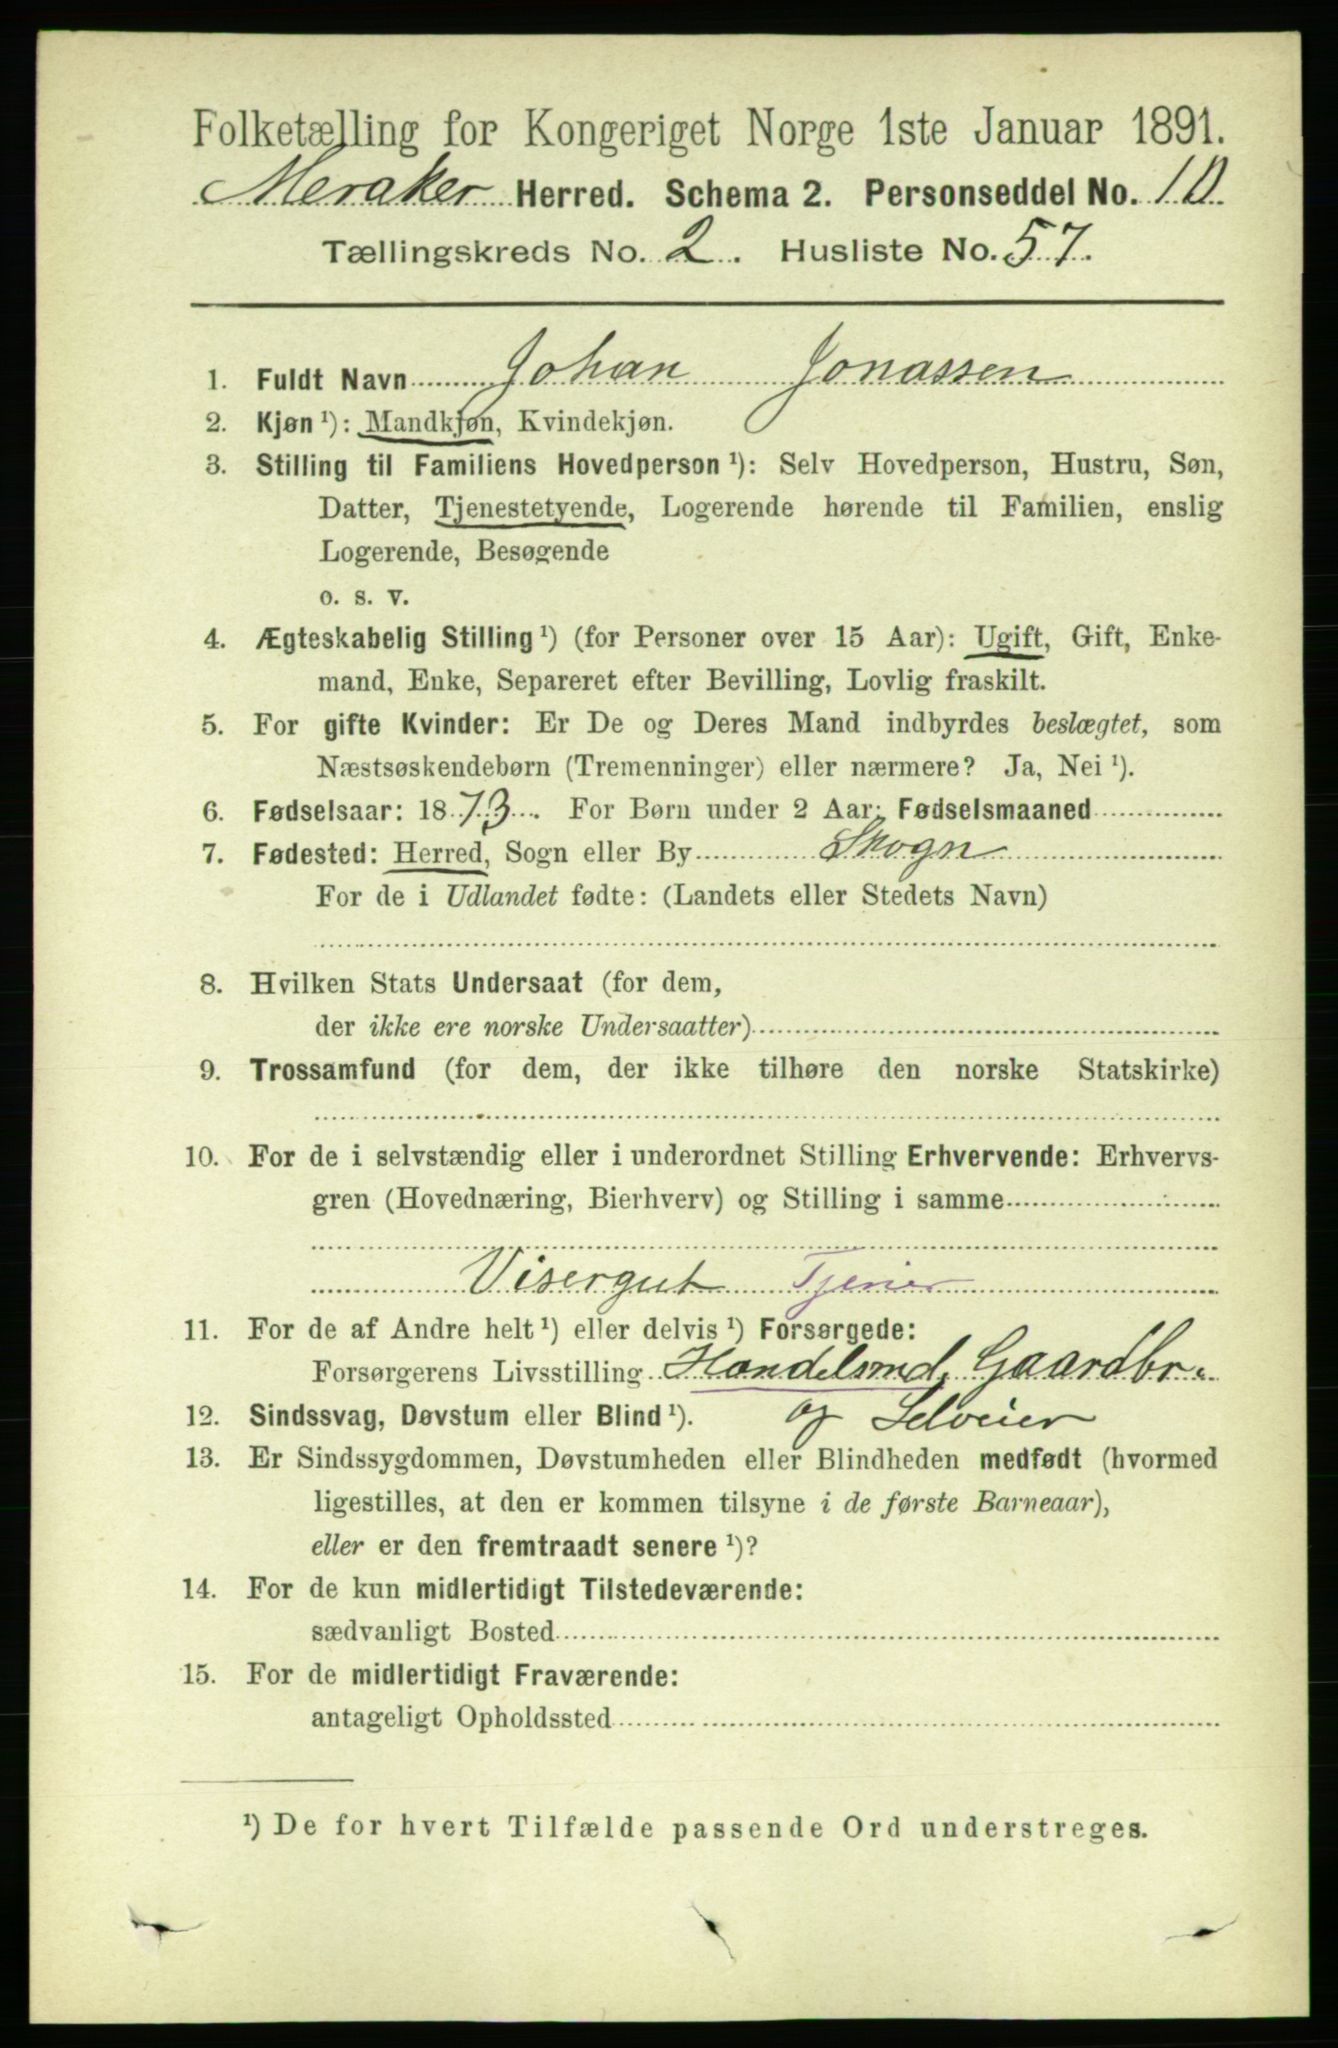 Folketælling for Kongeriget Norge 1ste Januar 1891.
Meraker Herred. Schema 2. Personseddel No. 10.
Tællingskreds No. 2. Husliste No. 57.
1. Fuldt Navn Johan Jonassen
2. Kjøn ¹): Mandkjøn, Kvindekjøn.
3. Stilling til Familiens Hovedperson ¹): Selv Hovedperson, Hustru, Søn,
Datter, Tjenestetyende, Logerende hørende til Familien, enslig
Logerende, Besøgende
o. s. v.
4. Ægteskabelig Stilling ¹) (for Personer over 15 Aar): Ugift, Gift, Enke-
mand, Enke, Separeret efter Bevilling, Lovlig fraskilt.
5. For gifte Kvinder: Er De og Deres Mand indbyrdes beslægtet, som
Næstsøskendebørn (Tremenninger) eller nærmere? Ja, Nei ¹).
6. Fødselsaar: 1873. For Børn under 2 Aar: Fødselsmaaned
7. Fødested: Herred, Sogn eller By Skogn
For de i Udlandet fødte: (Landets eller Stedets Navn)
8. Hvilken Stats Undersaat (for dem,
der ikke ere norske Undersaatter)
9. Trossamfund (for dem, der ikke tilhøre den norske Statskirke)
10. For de i selvstændig eller i underordnet Stilling Erhvervende: Erhvervs-
gren (Hovednæring, Bierhverv) og Stilling i samme
Visergut Tjener
11. For de af Andre helt ¹) eller delvis ¹) Forsørgede:
Forsørgerens Livsstilling Handelsmd, Gaardbr.
12. Sindssvag, Døvstum eller Blind ¹). og Selveier
13. Er Sindssygdommen, Døvstumheden eller Blindheden medfødt (hvormed
ligestilles, at den er kommen tilsyne i de første Barneaar),
eller er den fremtraadt senere ¹)?
14. For de kun midlertidigt Tilstedeværende:
sædvanligt Bosted
15. For de midlertidigt Fraværende:
antageligt Opholdssted
¹) De for hvert Tilfælde passende Ord understreges.